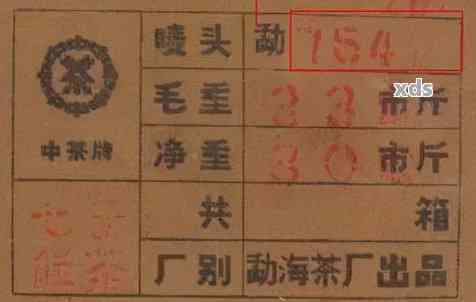 唛头 勐 154
xds
毛重 33 市斤
中茶牌 净重 30 市斤
七子 共 箱
饼茶 厂别 勐海茶厂出品